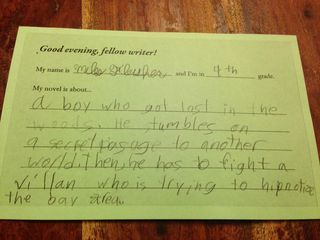 Good evening, fellow writer!
My name is and I'm in 4th grade.
My novel is about...
a boy who got lost in the
woods. He stumbles on
a secret pasage to another
world. then, he has to fight a
villan who is trying to hipnotize
the bay area.